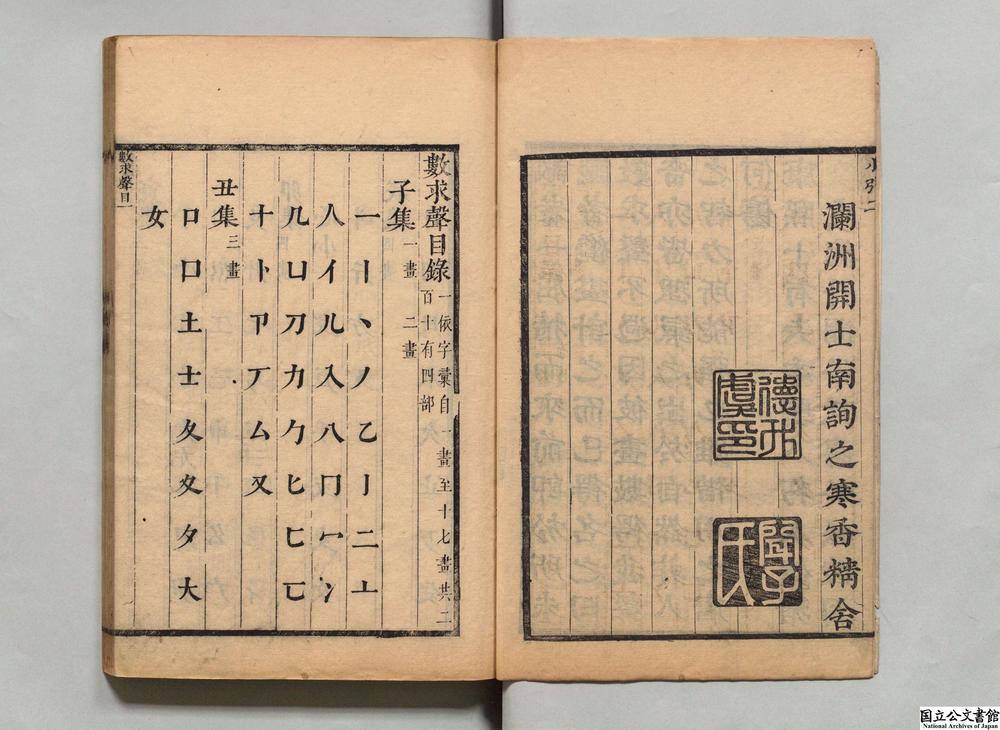 小引二
瀾洲開士南詢之寒香精舍
數求聲目錄
一依字彙自一畫至十七畫共二
百十有四部
子集
一畫
二畫
一丨丶丿乙亅二亠
人亻儿入八冂冖冫
几凵刀力勹匕匚匸
十卜卩厂厶又
丑集
三畫
口囗土士夂夊夕大
女
數求聲目一
国立公文書館
National Archives of Japan